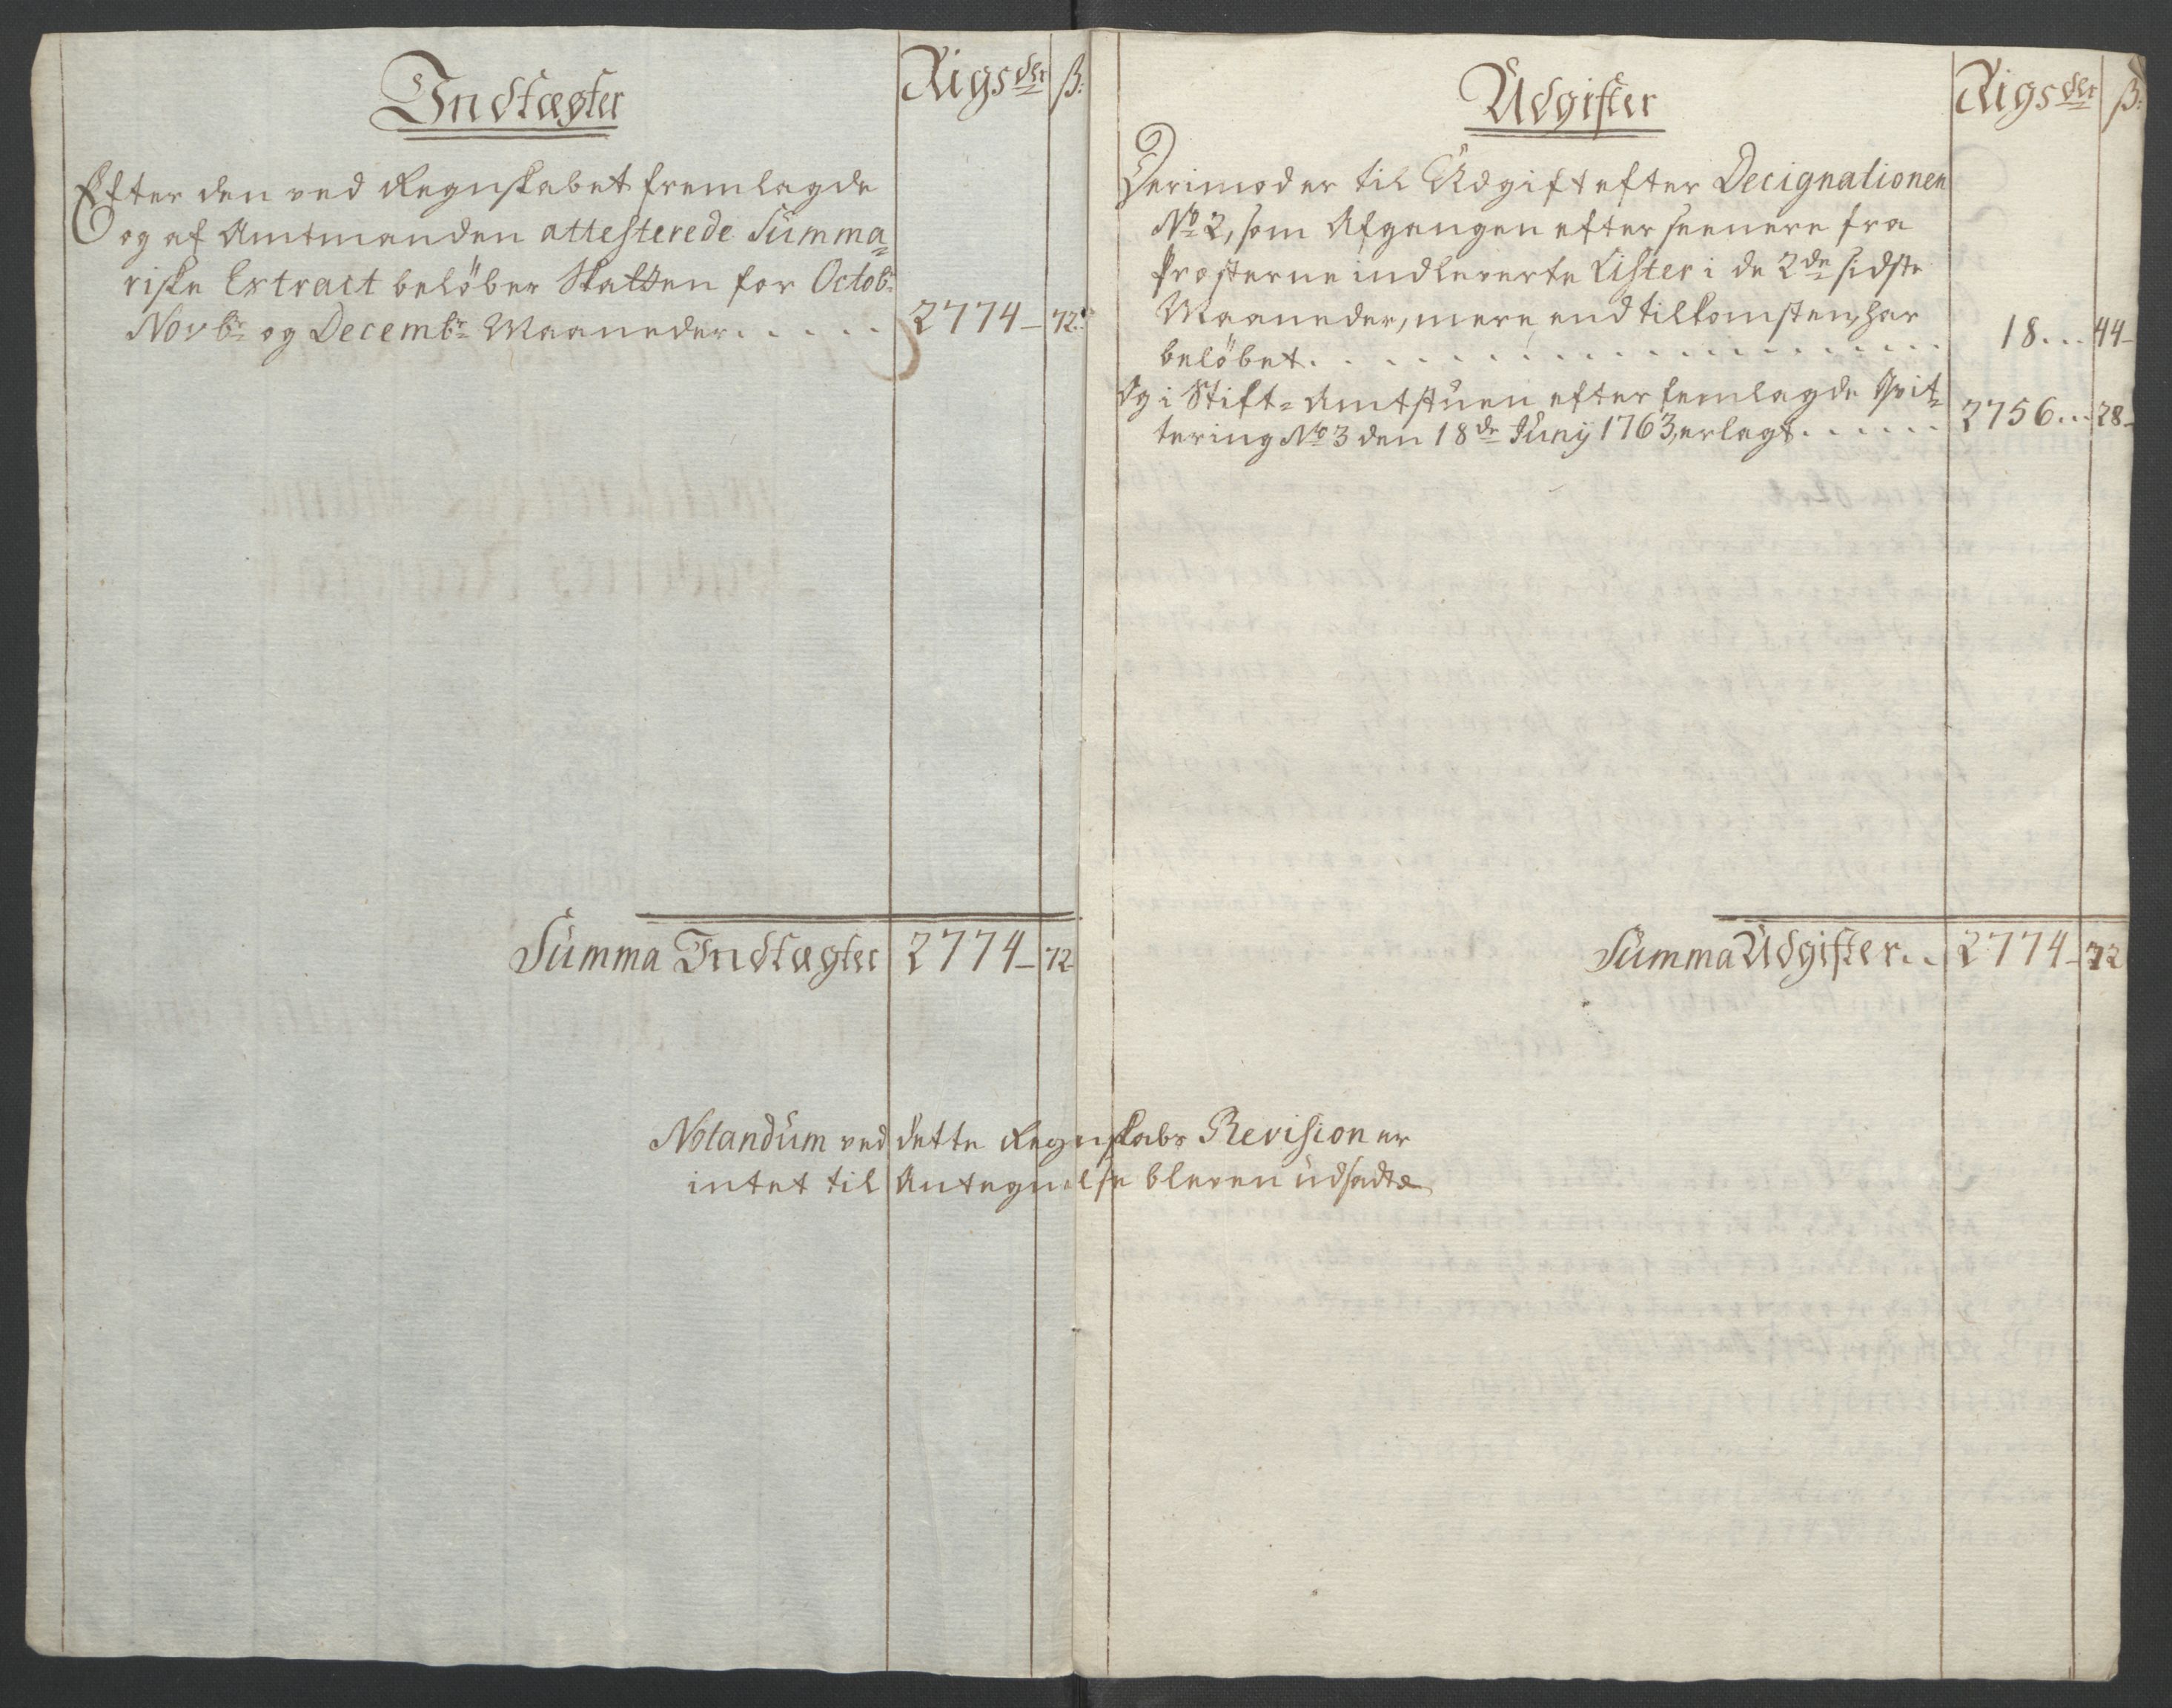 Indtægter
Rigsdlr ß:
Efter den ved Regnskabet fremlagde
og af Amtmanden attesterede Summa=
riske Extract beløber Skatten for Octobr
Novbr og Decembr Maaneder..... 2774 - 72.
Summa Indtægter 2774 - 72
Udgifter
Rigsdlr ß:
Derimod er til Udgift efter Decignationen
No 2, som Afgangen efter seenere fra
Præsterne indleverte Lister i de 2de sidste
Maaneder, mere end tilkomsten, har
beløbet. . . . . . . . . . 18... 44-
Og i Stift=Amtstuen efter femlagde Qvit=
tering No 3 den 18de Junij 1763, erlagt...... 2756... 28-
Summa Udgifter.. 2774 - 72
Notandum ved dette Regnskabs Revision er
intet til Antegnelse bleven udsadte